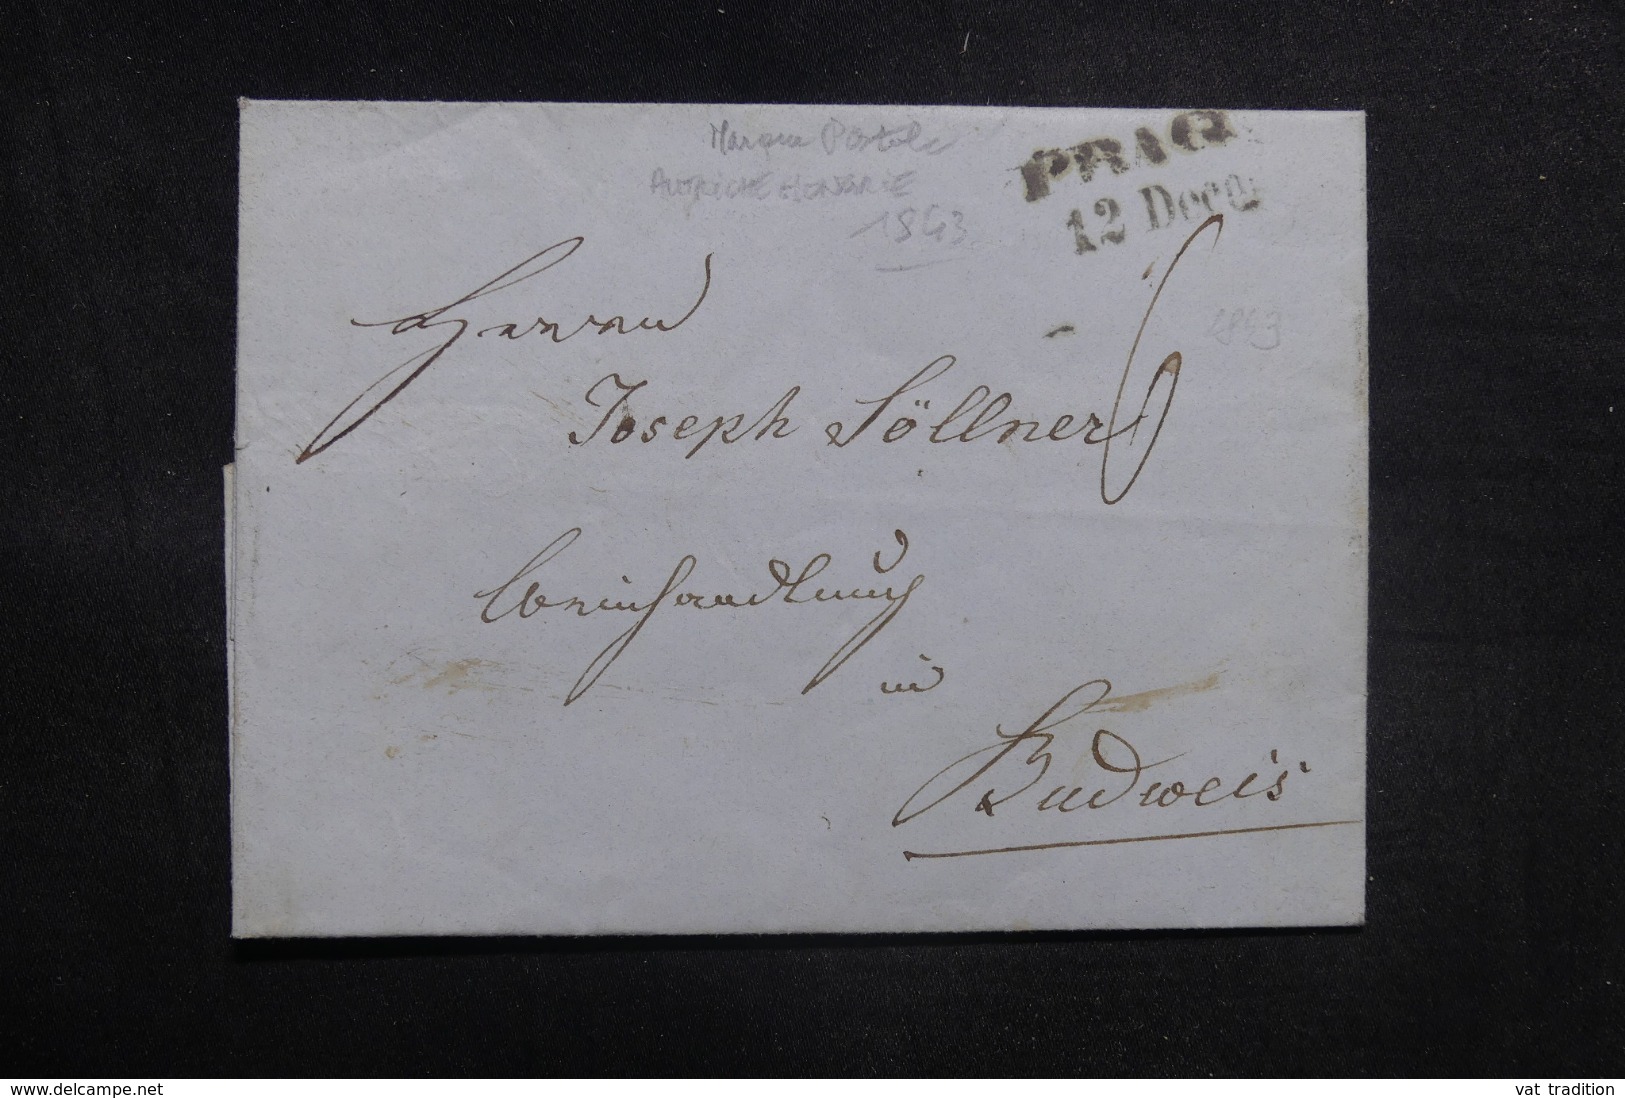 Marque Postale
AUTRICHE HONGRIE
1843
PRAG
12 Dece
6
1843
Herrn
Joseph Söllner
Weinhandlung
in
Budweis
www.delcampe.net
vat tradition